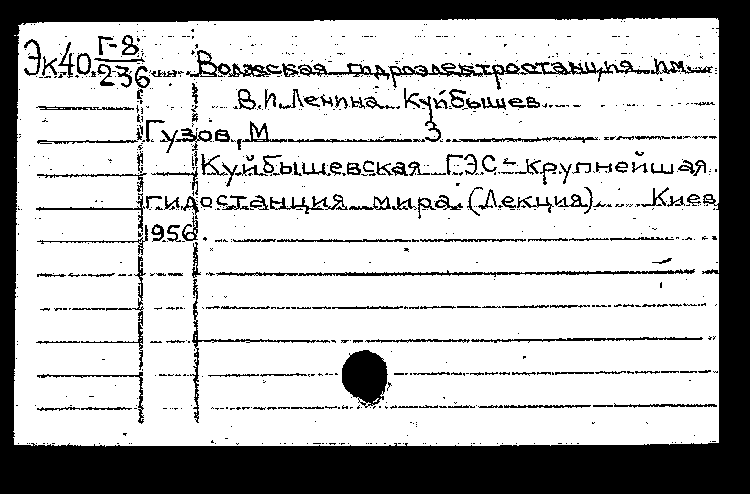 Эк40 Г-8/236 Волжская гидроэлектростанция им.
В.И.Ленина Куйбышев
Гузов, М З
Куйбышевская ГЭС - крупнейшая
гидостанция мира. (Лекция). Киев
1956.